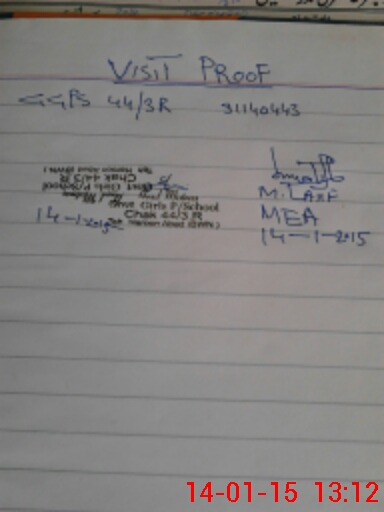 VISIT PROOF
GGPS 44/3R 31140443
Head Mistress
Govt Girls P/School
Chak 44/3 R
Teh. Haroon Abad (BWN)
Govt Girls P/School
Chak 44/3 R
14-1-2015
MEA
14-1-2015
14-01-15 13:12